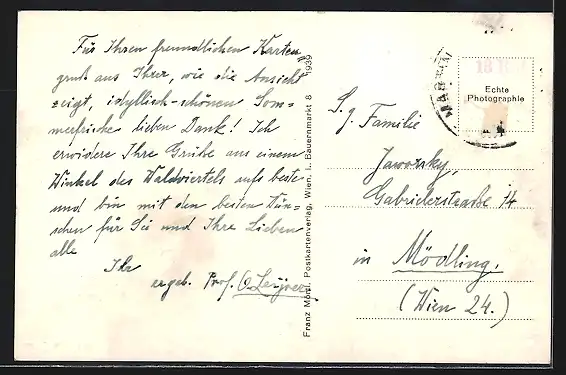 Für Ihren freundlichen Karten-
gruß aus Ihrer, wie die Ansicht
zeigt, idyllisch-schönen Som-
merfrische lieben Dank! Ich
erwidere Ihre Grüße aus einem
Winkel des Waldviertels aufs beste
und bin mit den besten Wün-
schen für Sie und Ihre Lieben
alle
Ihr
ergeb. Prof. O.
Franz Mörtl, Postkartenverlag, Wien, I., Bauernmarkt 8 1939
Echte
Photographie
S. g. Familie
Jaworsky,
Gabrielerstraße 14
in Mödling,
(Wien 24.)